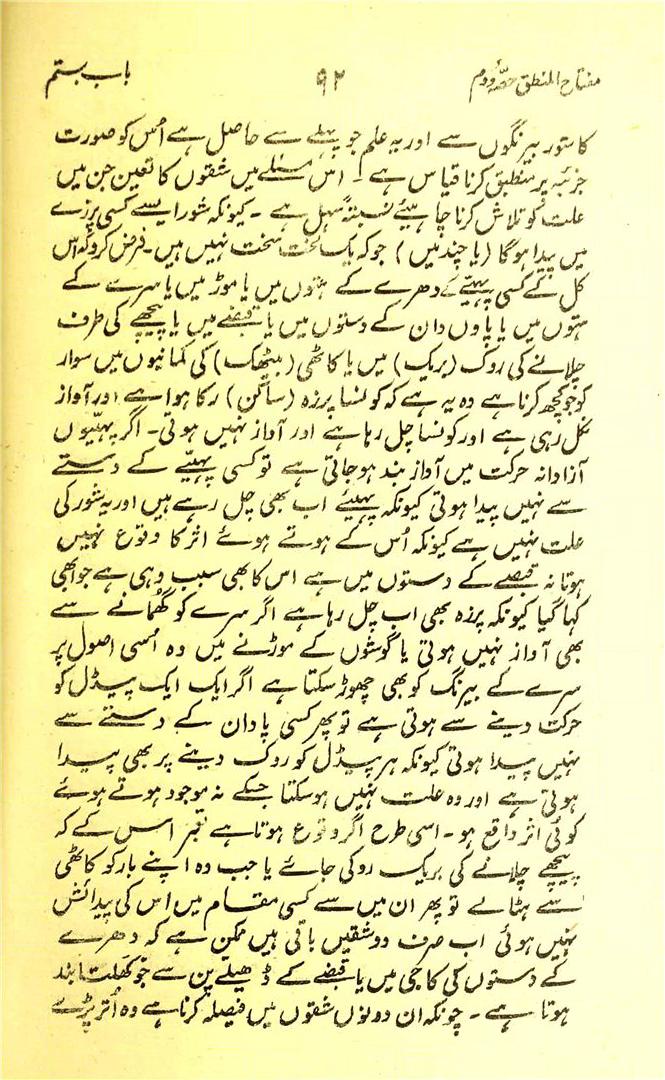 مفتاح المنطق حصہ دوم ۹۲ باب بستم
کا ستور بیرنگوں سے اور یہ علم جو پہلے سے حاصل ہے اُس کو صورت
جزئیہ پر منطبق کرنا قیاس ہے۔ اس مسئلے میں شقوں کا تعین جن میں
علت کو تلاش کرنا چاہیئے نسبتہً سہل ہے ۔ کیونکہ شور ایسے کسی پرزے
میں پیدا ہوگا (یا چند میں) جو کہ یک لخت سخت نہیں ہیں۔ فرض کرو کہ اس
کل کے کسی پہیئے کے دھرے کے ہتوں میں یا موڑ میں یا سرے کے
ہتوں میں یا پاوں دان کے دستوں میں یا قبضے میں یا پیچھے کی طرف
چلانے کی روک (بریک) میں یا کاٹھی (بیٹھک) کی کمانیوں میں سوار
کو جو کچھ کرنا ہے وہ یہ ہے کہ کونسا پرزہ (ساکن) رکا ہوا ہے اور آواز
نکل رہی ہے اور کونسا چل رہا ہے اور آواز نہیں ہوتی۔ اگر پہیوں
آزادانہ حرکت میں آواز بند ہو جاتی ہے تو کسی پہیّے کے دستے
سے نہیں پیدا ہوتی کیونکہ پہیئے اب بھی چل رہے ہیں اور یہ شور کی
علت نہیں ہے کیونکہ اُس کے ہوتے ہوئے اثر کا وقوع نہیں
ہوتا نہ قبضے کے دستوں میں ہے اس کا بھی سبب وہی ہے جو ابھی
کہا گیا کیونکہ پرزہ بھی اب چل رہا ہے اگر سرے کو گھمانے سے
بھی آواز نہیں ہوتی یا گوشوں کے موڑنے میں وہ اُسی اصول پر
سرے کے بیرنگ کو بھی چھوڑ سکتا ہے اگر ایک ایک پیڈل کو
حرکت دینے سے ہوتی ہے تو پھر کسی پادان کے دستے سے
نہیں پیدا ہوتی کیونکہ ہر پیڈل کو روک دینے پر بھی پیدا
ہوتی ہے اور وہ علت نہیں ہوسکتا جسکے نہ موجود ہوتے ہوئے
کوئی اثر واقع ہو۔ اسی طرح اگر وقوع ہوتا ہے بغیر اس کے کہ
پیچھے چلانے کی بریک روکی جائے یا جب وہ اپنے بار کو کاٹھی
سے ہٹالے تو پھر ان میں سے کسی مقام میں اس کی پیدائش
نہیں ہوئی اب صرف دو شقیں باقی ہیں ممکن ہے کہ دھرے
کے دستوں کی کاجی میں یا قبضے کے ڈھیلے پن سے جو کھلتا بند
ہوتا ہے ۔ چونکہ ان دونوں شقوں میں فیصلہ کرنا ہے وہ اُتر پڑے